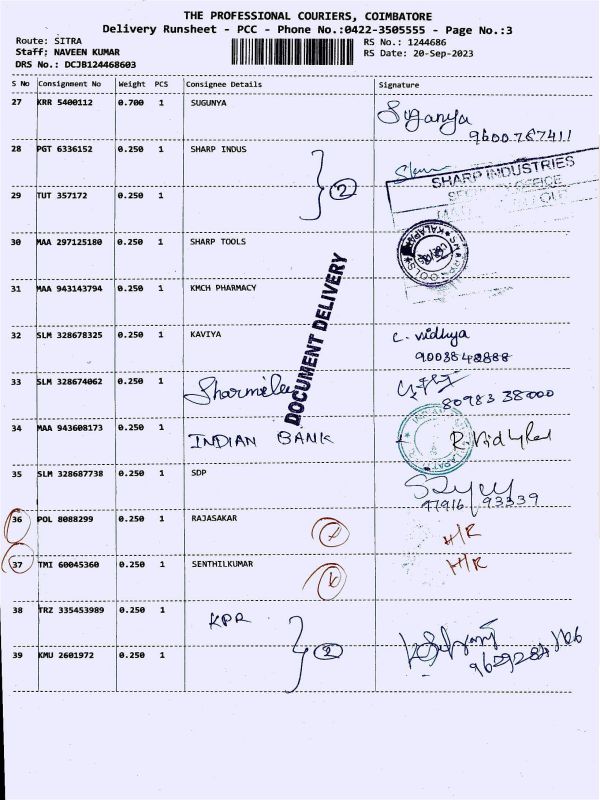 THE PROFESSIONAL COURIERS, COIMBATORE
Delivery Runsheet - PCC - Phone No.:0422-3505555 - Page No.:3
Route: SITRA
Staff; NAVEEN KUMAR
DRS No.: DCJB124468603
RS No.: 1244686
RS Date: 20-Sep-2023
S No Consignment No Weight PCS Consignee Details Signature
27 KRR 5400112 0.700 1 SUGUNYA Suganya
9600787411
28 PGT 6336152 0.250 1 SHARP INDUS
SHARP INDUSTRIES
29 TUT 357172 0.250 1
2
30 MAA 297125180 0.250 1 SHARP TOOLS
31 MAA 943143794 0.250 1 KMCH PHARMACY
DOCUMENT DELIVERY
32 SLM 328678325 0.250 1 KAVIYA C. Vidhya
9003842888
33 SLM 328674062 0.250 1 Sharmila
80983 38000
34 MAA 943608173 0.250 1 INDIAN BANK
35 SLM 328687738 0.250 1 SDP
97916 93339
36 POL 8088299 0.250 1 RAJASAKAR H/R
37 TMI 60045360 0.250 1 SENTHILKUMAR H/R
38 TRZ 335453989 0.250 1 KPR
39 KMU 2601972 0.250 1
2